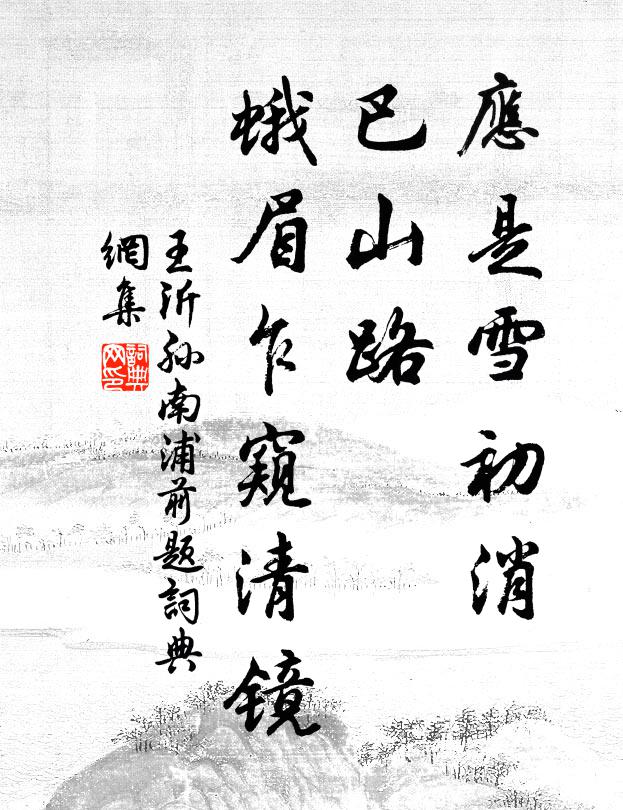 應是雪初消
巴山路
蛾眉乍窺清镜
王沂孙南浦前题詞典
網集
詞典
网印